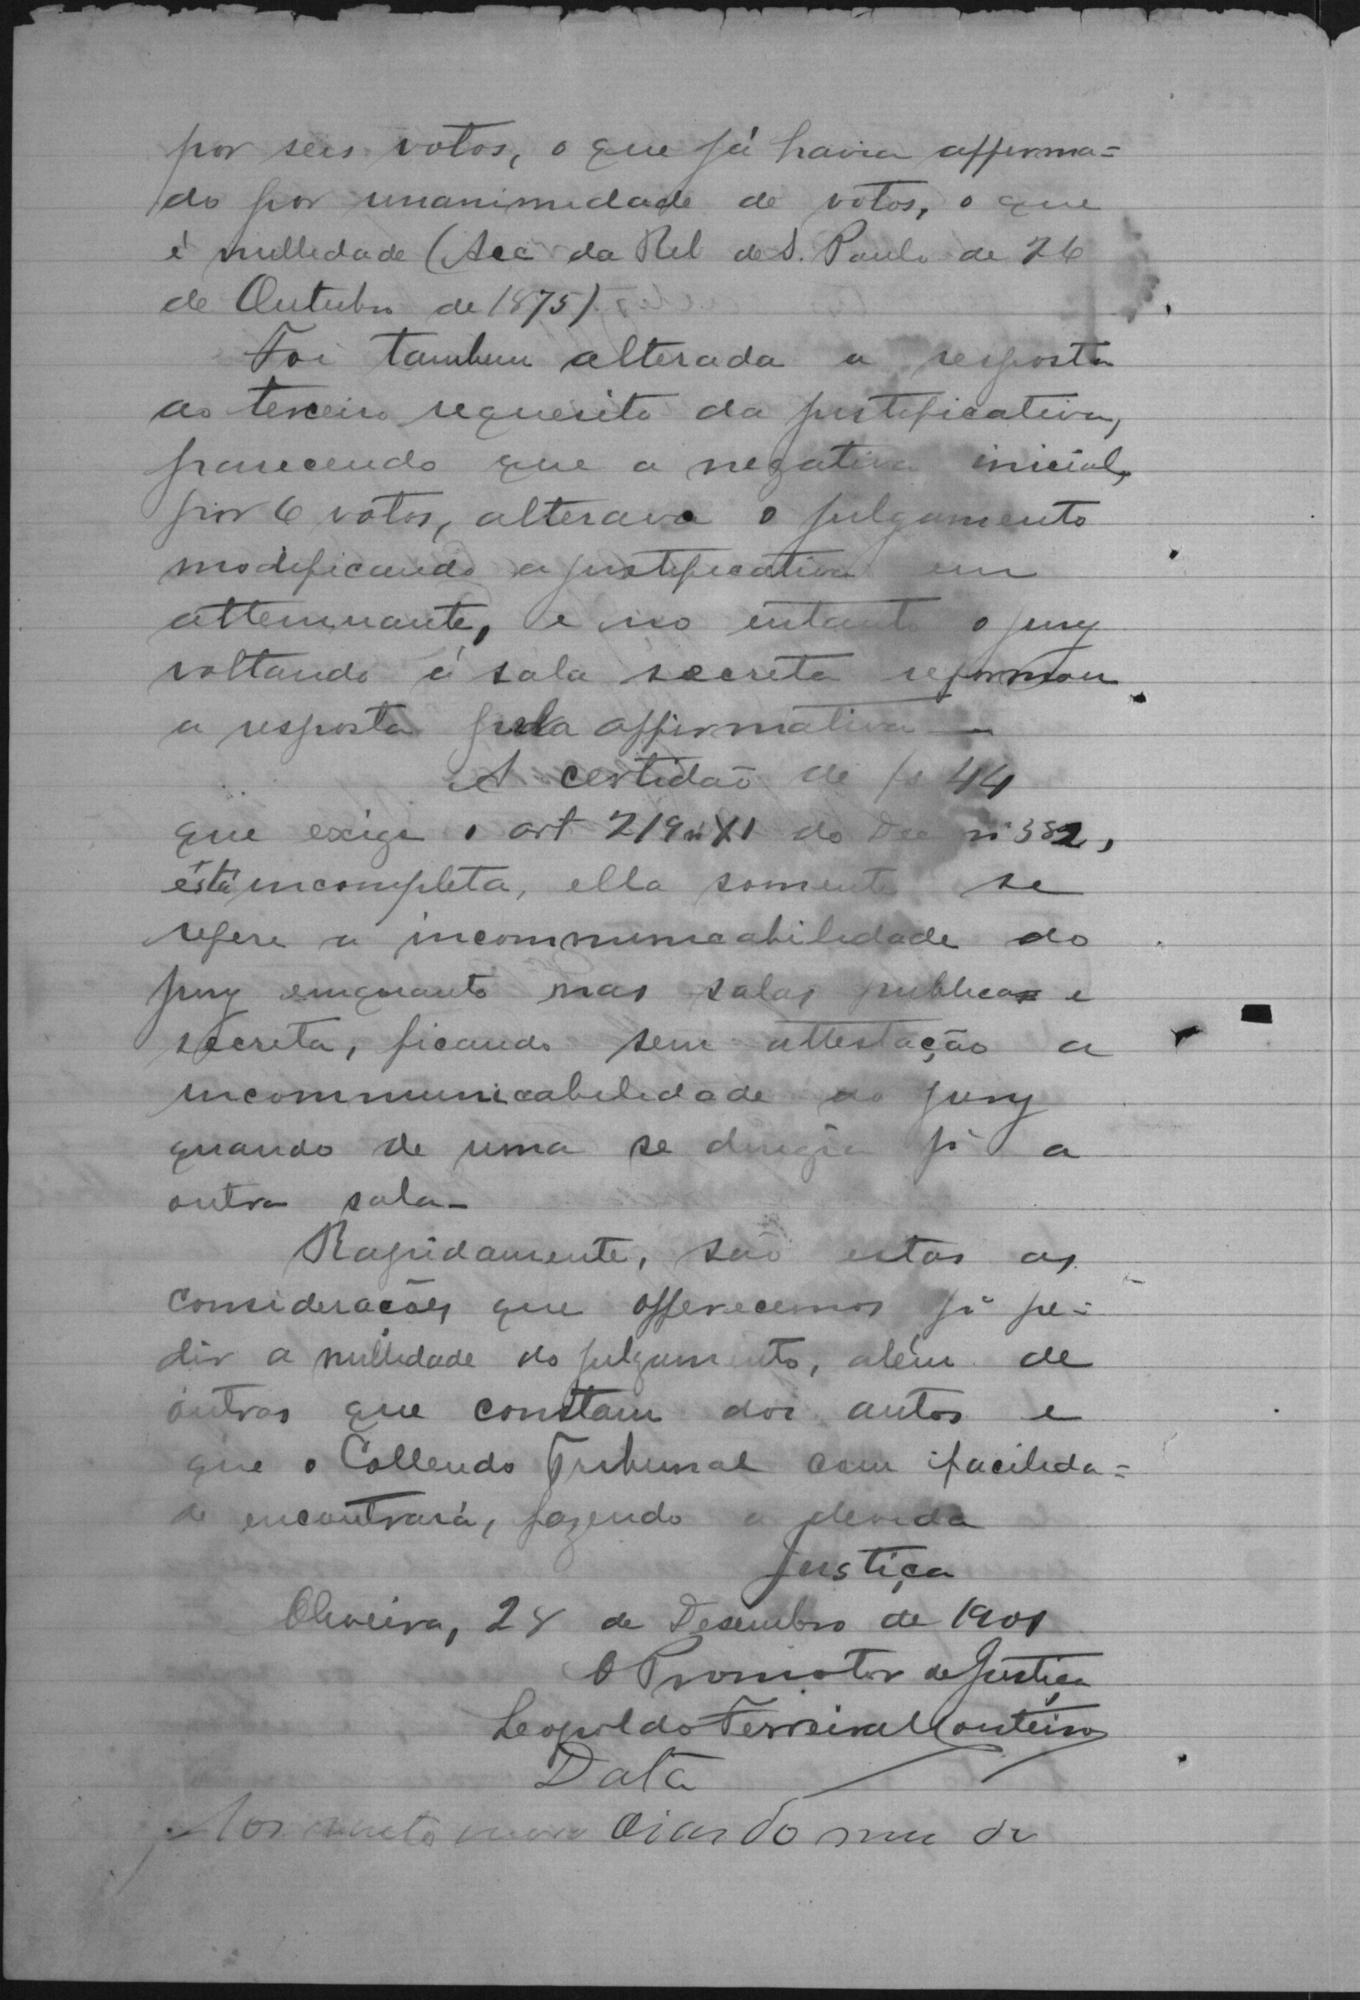 por seis votos, o que já havia affirma=
do por unanimidade de votos, o que
é nullidade (Acc da Rel de S. Paulo de 26
de Outubro de 1875)
Foi tambem alterada a resposta
ao terceiro requesito da justificativa,
parecendo que a negativa inicial,
por 6 votos, alterava o julgamento
modificando a justificativa em
attenuante, e no entanto o jury
voltando á sala secreta reformou
a resposta pela affirmativa —
A certidão de fs 44
que exige o art 219 nº XI do Dec nº 382,
está incompleta, ella somente se
refere a incommunicabilidade do
jury emquanto nas salas publica e
secreta, ficando sem attestação a
incommunicabilidade do jury
quando de uma se dirigia pª a
outra sala—
Rapidamente, são estas as
considerações que offerecemos pª pe=
dir a nullidade do julgamento, além de
outras que constam dos autos e
que o Collendo Tribunal com facilida=
de encontrará, fazendo a devida
Justiça
Oliveira, 28 de Desembro de 1901
O Promotor de Justiça
Leopoldo Ferreira Monteiro
Data
Aos vinte nove dias do mez de